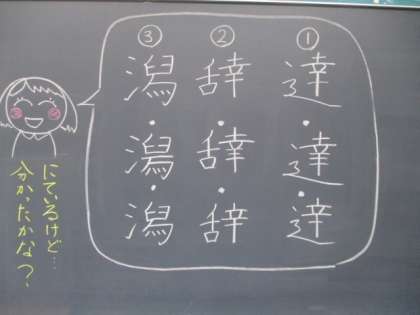 ① 達・達・達
② 辞・辞・辞
③ 潟・潟・潟
にているけど…
分かったかな？